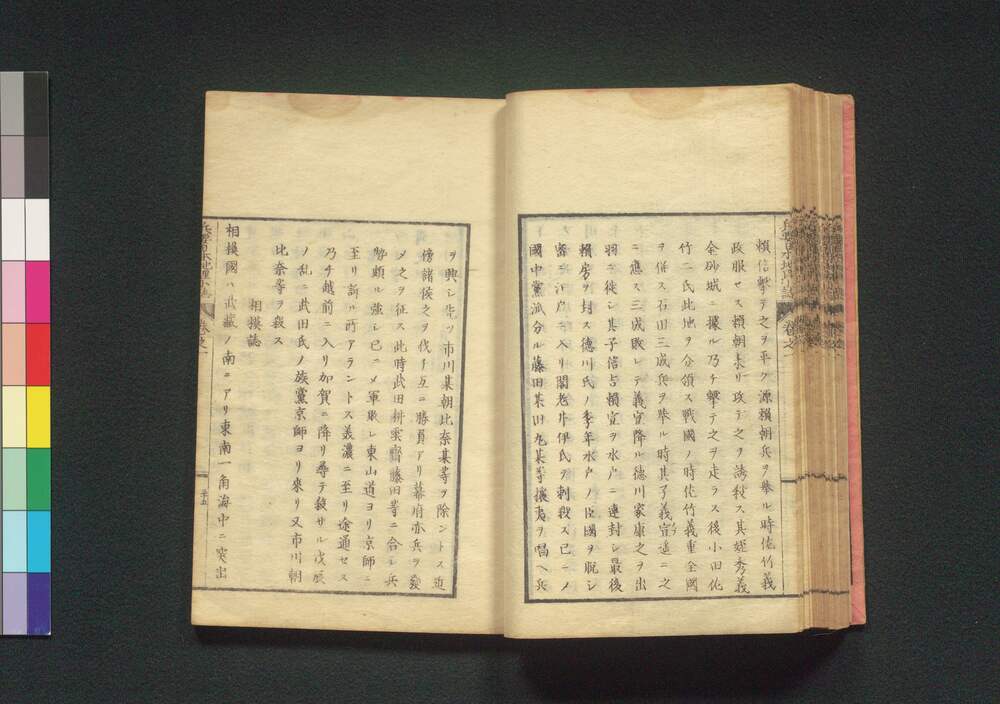 頼信撃テ之ヲ平ク源頼朝兵ヲ挙ル時佐竹義
政服セス頼朝来リ攻テ之ヲ誘殺ス其姪秀義
金砂城ニ據ル乃チ撃テ之ヲ走ラス後小田佐
竹二氏此地ヲ分領ス戰國ノ時佐竹義重全國
ヲ併ス石田三成兵ヲ挙ル時其子義宣遥ニ之
ニ應ス三成敗レテ義宣降ル徳川家康之ヲ出
羽ニ徙シ其子信吉頼宣ヲ水戸ニ連封シ最後
頼房ヲ封ス徳川氏ノ季年水戸ノ臣國ヲ脱シ
密ニ江戸ニ入リ閣老井伊氏ヲ刺殺ス已ニノ
國中黨派分ル藤田某田丸某等攘夷ヲ唱ヘ兵
ヲ興シ先ツ市川某朝比奈某等ヲ除ントス近
傍諸侯之ヲ伐チ互ニ勝負アリ幕府亦兵ヲ發
メ之ヲ征ス此時武田耕雲齋藤田等ニ合シ兵
勢頗ル強シ已ニメ軍敗レ東山道ヨリ京師ニ
至リ訴ル所アラントス美濃ニ至リ途通セス
乃チ越前ニ入リ加賀ニ降リ尋テ殺サル戊辰
ノ乱ニ武田氏ノ族黨京師ヨリ来リ又市川朝
比奈等ヲ殺ス
相摸誌
相摸國ハ武蔵ノ南ニアリ東南一角海中ニ突出
卷之一